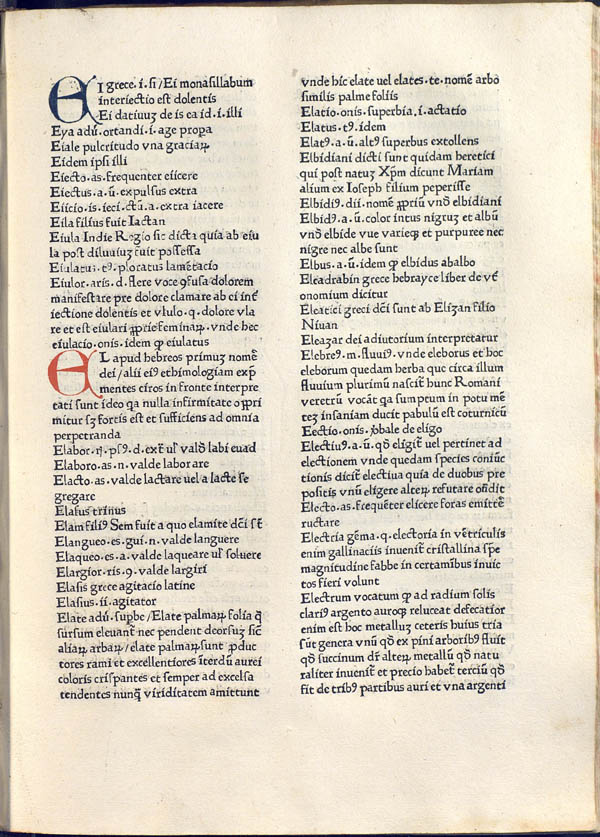 EI grece.i.si/Ei monasillabum
interiectio est dolentis
Ei datiuuʒ de is ea id.i.illi
Eya adũ.ortandi.i.age propa
Eiale pulcritudo vna graciaꝝ
Eidem ipsi illi
Eiecto.as.frequenter eiicere
Eiectus.a.ũ.expulsus extra
Eiicio.is.ieci.ctũ.a.extra iacere
Eila filius fuit Iactan
Eiula Indie Regio sic dicta quia ab eiu
la post diluuiuʒ fuit possessa
Eiulatus.tꝰ.ploratus lamētacio
Eiulor.aris.d.flere voce ꝯfusa dolorem
manifestare pre dolore clamare ab ei inť
iectione dolentis et vlulo.q.dolore vla
re et est eiulari ꝓprie feminaꝝ.vnde hec
eiulacio.onis.idem ꝙ eiulatus
EL apud hebreos primuʒ nomē
dei/alii eiꝰ ethimologiam exp̃
mentes ciros in fronte interpre
tati sunt ideo qa nulla infirmitate oꝓpri
mitur sʒ fortis est et sufficiens ad omnia
perpetranda
Elabor.rͥ.psꝰ.d.ext̃ ul̃ valð labi euad
Elaboro.as.n.valde laborare
Elacto.as.valde lactare uel a lacte se
gregare
Elafus trinus
Elam filiꝰ Sem fuit a quo elamite dc̃i sť
Elangueo.es.gui.n.valde languere
Elaqueo.es.a.valde laqueare ul̃ soluere
Elargior.ris.q.valde largiri
Elasis grece agitacio latine
Elasius.ii.agitator
Elate adũ.supbe/Elate palmaꝝ folia q̃
sursum eleuant̃ nec pendent deorsuʒ sic̃
aliaꝝ arbaꝝ/elate palmaꝝ sunt ꝓduc
tores rami et excellentiores ĩterdũ aurei
coloris crispantes et semper ad excelsa
tendentes nunq̃ viriditatem amittunt
vnde hic elate uel elates.te.nomē arbo
similis palme foliis
Elatio.onis.superbia.i.actatio
Elatus.tꝰ.idem
Elatꝰ.a.ũ.altꝰ superbus extollens
Elbidiani dicti sunt quidam heretici
qui post natuʒ Xp̃m dicunt Mariam
alium ex Ioseph filium peperisse
Elbidiꝰ.dii.nomē ꝓpriũ vnð elbidiani
Elbidꝰ.a.ũ.color intus nigruʒ et albũ
vnð elbide vue varieq̃ et purpuree nec
nigre nec albe sunt
Elbus.a.ũ.idem ꝙ elbidus abalbo
Eleadrabin grece hebrayce liber de vť
onomium dicitur
Eleatici greci dc̃i sunt ab Eliʒan filio
Niuan
Eleaʒar dei adiutorium interpretatur
Elebreꝰ.m.fluuiꝰ.vnde eleborus et hoc
eleborum quedam herba que circa illum
fluuium plurimũ nascit̃ hunc Romani
veretrũ vocãt qa sumptum in potu mē
teʒ insaniam ducit pabulũ est coturnicũ
Eectio.onis.ꝟbale de eligo
Electiuꝰ.a.ũ.qð eligit̃ uel pertinet ad
electionem vnde quedam species coniũc
tionis dicit̃ electiua quia de duobus pre
positis vnũ eligere alteꝝ refutare oñdit
Electo.as.frequēter elicere foras emittē
ructare
Electria gēma.q.electoria in vētriculis
enim gallinaciis inuenit̃ cristallina spẽ
magnitudine fabbe in certamibus inuic
tos fieri volunt
Electrum vocatum ꝙ ad radium solis
clariꝰ argento auroqꝫ reluceat defecatior
enim est hoc metalluʒ ceteris huius tria
sũt genera vnũ qð ex pini arboribꝰ fluit
qð succinum dr̃ alteꝝ metallũ qð natu
raliter inuenit̃ et precio habet̃ terciũ qð
fit de tribꝰ partibus auri et vna argenti